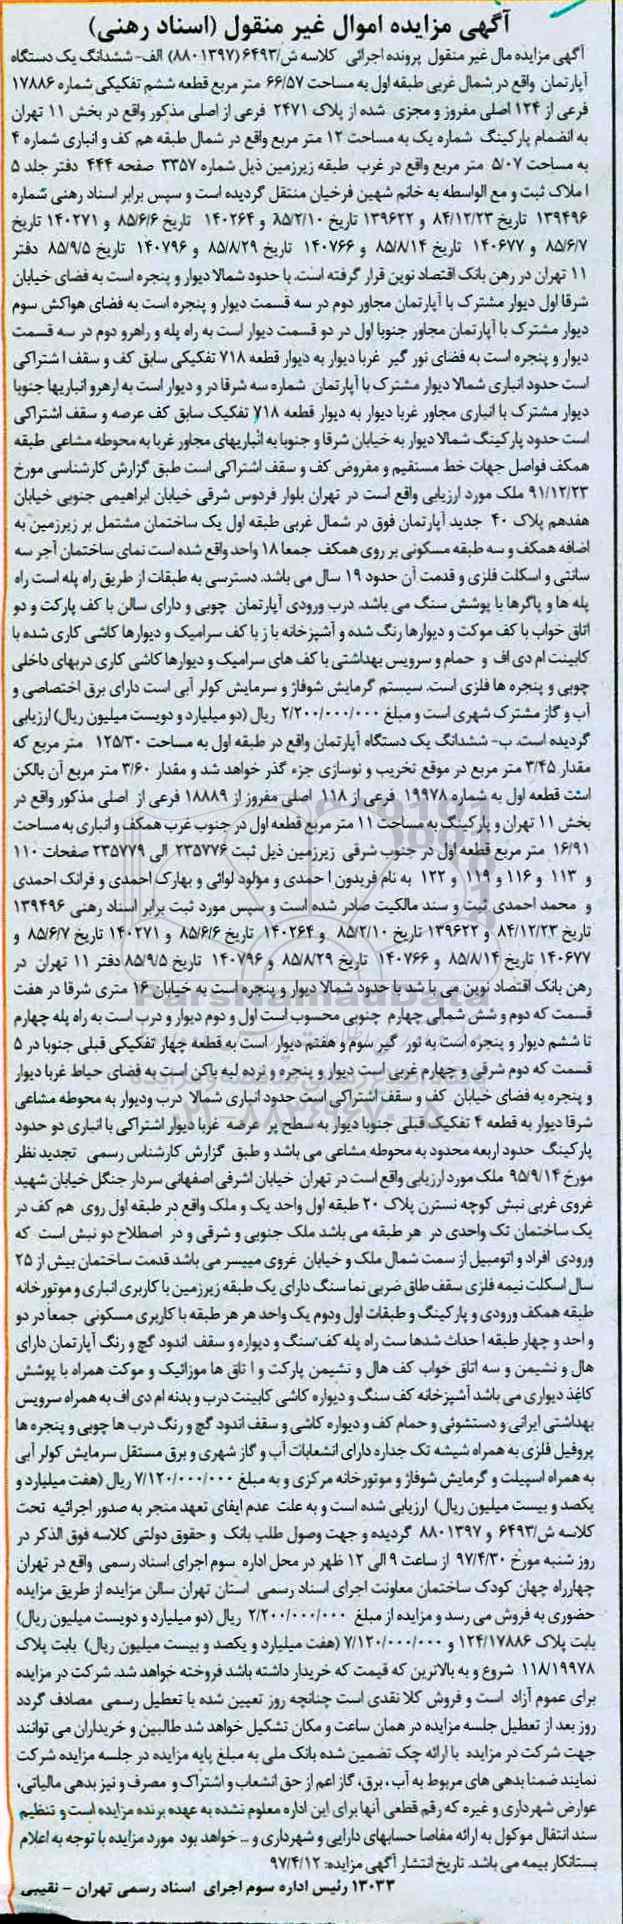 آگهی مزایده اموال غیر منقول (اسناد رهنی)
آگهی مزایده مال غیر منقول پرونده اجرائی کلاسه ش/۶۴۹۳ (۸۸۰۱۳۹۷) الف- ششدانگ یک دستگاه
آپارتمان واقع در شمال غربی طبقه اول به مساحت ۶۶/۵۷ متر مربع قطعه ششم تفکیکی شماره ۱۷۸۸۶
فرعی از ۱۲۴ اصلی مفروز و مجزی شده از پلاک ۲۴۷۱ فرعی از اصلی مذکور واقع در بخش ۱۱ تهران
به انضمام پارکینگ شماره یک به مساحت ۱۲ متر مربع واقع در شمال طبقه هم کف و انباری شماره ۴
به مساحت ۵/۰۷ متر مربع واقع در غرب طبقه زیرزمین ذیل شماره ۳۳۵۷ صفحه ۴۴۴ دفتر جلد ۵
املاک ثبت و مع الواسطه به خانم شهین فرخیان منتقل گردیده است و سپس برابر اسناد رهنی شماره
۱۳۹۴۹۶ تاریخ ۸۴/۱۲/۲۳ و ۱۳۹۶۲۲ تاریخ ۸۵/۲/۱۰ و ۱۴۰۲۶۴ تاریخ ۸۵/۶/۶ و ۱۴۰۲۷۱ تاریخ
۸۵/۶/۷ و ۱۴۰۶۷۷ تاریخ ۸۵/۸/۱۴ و ۱۴۰۷۶۶ تاریخ ۸۵/۸/۲۹ و ۱۴۰۷۹۶ تاریخ ۸۵/۹/۵ دفتر
۱۱ تهران در رهن بانک اقتصاد نوین قرار گرفته است. با حدود شمالا دیوار و پنجره است به فضای خیابان
شرقا اول دیوار مشترک با آپارتمان مجاور دوم در سه قسمت دیوار و پنجره است به فضای هواکش سوم
دیوار مشترک با آپارتمان مجاور جنوبا اول در دو قسمت دیوار است به راه پله و راهرو دوم در سه قسمت
دیوار و پنجره است به فضای نور گیر غربا دیوار به دیوار قطعه ۷۱۸ تفکیکی سابق کف و سقف اشتراکی
است حدود انباری شمالا دیوار مشترک با آپارتمان شماره سه شرقا در و دیوار است به ارهرو انباریها جنوبا
دیوار مشترک با انباری مجاور غربا دیوار به دیوار قطعه ۷۱۸ تفکیک سابق کف عرصه و سقف اشتراکی
است حدود پارکینگ شمالا دیوار به خیابان شرقا و جنوبا به انباریهای مجاور غربا به محوطه مشاعی طبقه
همکف فواصل جهات خط مستقیم و مفروض کف و سقف اشتراکی است طبق گزارش کارشناسی مورخ
۹۱/۱۲/۲۳ ملک مورد ارزیابی واقع است در تهران بلوار فردوس شرقی خیابان ابراهیمی جنوبی خیابان
هفدهم پلاک ۴۰ جدید آپارتمان فوق در شمال غربی طبقه اول یک ساختمان مشتمل بر زیرزمین به
اضافه همکف و سه طبقه مسکونی بر روی همکف جمعا ۱۸ واحد واقع شده است نمای ساختمان آجر سه
سانتی و اسکلت فلزی و قدمت آن حدود ۱۹ سال می باشد. دسترسی به طبقات از طریق راه پله است راه
پله ها و پاگرها با پوشش سنگ می باشد. درب ورودی آپارتمان چوبی و دارای سالن با کف پارکت و دو
اتاق خواب با کف موکت و دیوارها رنگ شده و آشپزخانه با ز با کف سرامیک و دیوارها کاشی کاری شده با
کابینت ام دی اف و حمام و سرویس بهداشتی با کف های سرامیک و دیوارها کاشی کاری دربهای داخلی
چوبی و پنجره ها فلزی است. سیستم گرمایش شوفاژ و سرمایش کولر آبی است دارای برق اختصاصی و
آب و گاز مشترک شهری است و مبلغ ۲/۲۰۰/۰۰۰/۰۰۰ ریال (دو میلیارد و دویست میلیون ریال) ارزیابی
گردیده است. ب- ششدانگ یک دستگاه آپارتمان واقع در طبقه اول به مساحت ۱۲۵/۳۰ متر مربع که
مقدار ۳/۴۵ متر مربع در موقع تخریب و نوسازی جزء گذر خواهد شد و مقدار ۳/۶۰ متر مربع آن بالکن
است قطعه اول به شماره ۱۹۹۷۸ فرعی از ۱۱۸ اصلی مفروز از ۱۸۸۸۹ فرعی از اصلی مذکور واقع در
بخش ۱۱ تهران و پارکینگ به مساحت ۱۱ متر مربع قطعه اول در جنوب غرب همکف و انباری به مساحت
۱۶/۹۱ متر مربع قطعه اول در جنوب شرقی زیرزمین ذیل ثبت ۲۳۵۷۷۶ الی ۲۳۵۷۷۹ صفحات ۱۱۰
و ۱۱۳ و ۱۱۶ و ۱۱۹ و ۱۲۲ به نام فریدون احمدی و مولود لوائی و بهارک احمدی و فرانک احمدی
و محمد احمدی ثبت و سند مالکیت صادر شده است و سپس مورد ثبت برابر اسناد رهنی ۱۳۹۴۹۶
تاریخ ۸۴/۱۲/۲۳ و ۱۳۹۶۲۲ تاریخ ۸۵/۲/۱۰ و ۱۴۰۲۶۴ تاریخ ۸۵/۶/۶ و ۱۴۰۲۷۱ تاریخ ۸۵/۶/۷ و
۱۴۰۶۷۷ تاریخ ۸۵/۸/۱۴ و ۱۴۰۷۶۶ تاریخ ۸۵/۸/۲۹ و ۱۴۰۷۹۶ تاریخ ۸۵/۹/۵ دفتر ۱۱ تهران در
رهن بانک اقتصاد نوین می با شد با حدود شمالا دیوار و پنجره است به خیابان ۱۶ متری شرقا در هفت
قسمت که دوم و شش شمالی چهارم جنوبی محسوب است اول و دوم دیوار و درب است به راه پله چهارم
تا ششم دیوار و پنجره است به نور گیر سوم و هفتم دیوار است به قطعه چهار تفکیکی قبلی جنوبا در ۵
قسمت که دوم شرقی و چهارم غربی است دیوار و پنجره و نرده لبه باکن است به فضای حیاط غربا دیوار
و پنجره به فضای خیابان کف و سقف اشتراکی است حدود انباری شمالا درب ودیوار به محوطه مشاعی
شرقا دیوار به قطعه ۴ تفکیک قبلی جنوبا دیوار به سطح پر عرصه غربا دیوار اشتراکی با انباری دو حدود
پارکینگ حدود اربعه محدود به محوطه مشاعی می باشد و طبق گزارش کارشناس رسمی تجدید نظر
مورخ ۹۵/۹/۱۴ ملک مورد ارزیابی واقع است در تهران خیابان اشرفی اصفهانی سردار جنگل خیابان شهید
غروی غربی نبش کوچه نسترن پلاک ۲۰ طبقه اول واحد یک و ملک واقع در طبقه اول روی هم کف در
یک ساختمان تک واحدی در هر طبقه می باشد ملک جنوبی و شرقی و در اصطلاح دو نبش است که
ورودی افراد و اتومبیل از سمت شمال ملک و خیابان غروی میسر می باشد قدمت ساختمان بیش از ۲۵
سال اسکلت نیمه فلزی سقف طاق ضربی نما سنگ دارای یک طبقه زیرزمین با کاربری انباری و موتورخانه
طبقه همکف ورودی و پارکینگ و طبقات اول ودوم یک واحد هر هر طبقه با کاربری مسکونی جمعا در دو
و احد و چهار طبقه ا حداث شدها ست راه پله کف سنگ و دیواره و سقف اندود گچ و رنگ آپارتمان دارای
هال و نشیمن و سه اتاق خواب کف هال و نشیمن پارکت و ا تاق ها موزائیک و موکت همراه با پوشش
کاغذ دیواری می باشد آشپزخانه کف سنگ و دیواره کاشی کابینت درب و بدنه ام دی اف به همراه سرویس
بهداشتی ایرانی و دستشوئی و حمام کف و دیواره کاشی و سقف اندود گچ و رنگ درب ها چوبی و پنجره ها
پروفیل فلزی به همراه شیشه تک جداره دارای انشعابات آب و گاز شهری و برق مستقل سرمایش کولر آبی
به همراه اسپیلت و گرمایش شوفاژ و موتورخانه مرکزی و به مبلغ ۷/۱۲۰/۰۰۰/۰۰۰ ریال (هفت میلیارد و
یکصد و بیست میلیون ریال) ارزیابی شده است و به علت عدم ایفای تعهد منجر به صدور اجرائیه تحت
کلاسه ش/۶۴۹۳ و ۸۸۰۱۳۹۷ گردیده و جهت وصول طلب بانک و حقوق دولتی کلاسه فوق الذکر در
روز شنبه مورخ ۹۷/۴/۳۰ از ساعت ۹ الی ۱۲ ظهر در محل اداره سوم اجرای اسناد رسمی واقع در تهران
چهارراه جهان کودک ساختمان معاونت اجرای اسناد رسمی استان تهران سالن مزایده از طریق مزایده
حضوری به فروش می رسد و مزایده از مبلغ ۲/۲۰۰/۰۰۰/۰۰۰ ریال (دو میلیارد و دویست میلیون ریال)
بابت پلاک ۱۲۴/۱۷۸۸۶ و ۷/۱۲۰/۰۰۰/۰۰۰ (هفت میلیارد و یکصد و بیست میلیون ریال) بابت پلاک
۱۱۸/۱۹۹۷۸ شروع و به بالاترین که قیمت که خریدار داشته باشد فروخته خواهد شد. شرکت در مزایده
برای عموم آزاد است و فروش کلا نقدی است چنانچه روز تعیین شده با تعطیل رسمی مصادف گردد
روز بعد از تعطیل جلسه مزایده در همان ساعت و مکان تشکیل خواهد شد طالبین و خریداران می توانند
جهت شرکت در مزایده با ارائه چک تضمین شده بانک ملی به مبلغ پایه مزایده در جلسه مزایده شرکت
نمایند ضمنا بدهی های مربوط به آب، برق، گاز اعم از حق انشعاب و اشتراک و مصرف و نیز بدهی مالیاتی،
عوارض شهرداری و غیره که رقم قطعی آنها برای این اداره معلوم نشده به عهده برنده مزایده است و تنظیم
سند انتقال موکول به ارائه مفاصا حسابهای دارایی و شهرداری و ... خواهد بود مورد مزایده با توجه به اعلام
بستانکار بیمه می باشد. تاریخ انتشار آگهی مزایده: ۹۷/۴/۱۲
۱۳۰۳۳ رئیس اداره سوم اجرای اسناد رسمی تهران - نقیبی